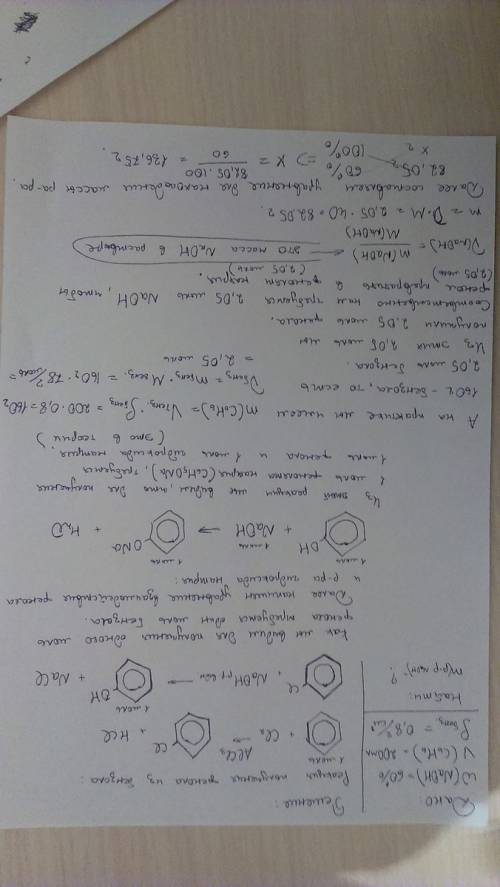 Дано:
W(NaOH) = 60%
V(C6H6) = 200мл
ρбенз. = 0,8 г/см³
Найти:
m(р-р NaOH) - ?
Решение:
Реакция получения фенола из бензола:
1 моль
+ Cl2 →(AlCl3) Cl + HCl
1 моль
Cl + NaOH р-р → OH + NaCl
Как мы видим для получения одного моль
фенола требуется один моль бензола.
Далее напишем уравнение взаимодействия фенола
и р-ра гидроксида натрия:
1 моль 1 моль 1 моль
OH + NaOH → ONa + H2O
Из этой реакции мы видим, что для получения
1 моль фенолята натрия (C6H5ONa), требуется
1 моль фенола и 1 моль гидроксида натрия.
(это в теории)
А на практике мы имеем m(C6H6) = Vбенз.·ρбенз = 200·0,8 = 160г
160г - бензола, то есть νбенз = mбенз.·Mбенз. = 160г·78г/моль =
= 2,05 моль
2,05 моль бензола.
Из этих 2,05 моль мы
получили 2,05 моль фенола.
Соответственно нам требуется 2,05 моль NaOH, чтобы
фенол превратить в фенолят натрия.
(2,05 моль) (2,05 моль)
ν(NaOH) = m(NaOH)/M(NaOH) это масса NaOH в растворе
m = ν·M = 2,05·40 = 82,05г.
Далее составляем уравнение для нахождения массы р-ра
82,05г 60%
x г 100% => x = 82,05·100/60 = 136,75г.